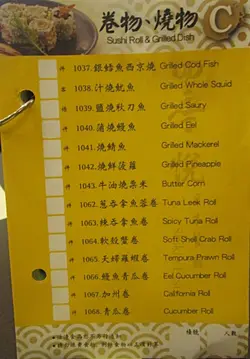 卷物、燒物 C
Sushi Roll & Grilled Dish
件 1037.銀鱈魚西京燒 Grilled Cod Fish
1038.汁燒魷魚 Grilled Whole Squid
1039.鹽燒秋刀魚 Grilled Saury
件 1040.蒲燒鰻魚 Grilled Eel
件 1041.燒鯖魚 Grilled Mackerel
件 1042.燒鮮菠蘿 Grilled Pineapple
件 1043.牛油燒粟米 Butter Corn
件 1062.葱吞拿魚蓉卷 Tuna Leek Roll
件 1063.辣吞拿魚卷 Spicy Tuna Roll
件 1064.軟殼蟹卷 Soft Shell Crab Roll
件 1065.天婦羅蝦卷 Tempura Prawn Roll
件 1066.鰻魚青瓜卷 Eel Cucumber Roll
件 1067.加州卷 California Roll
件 1068.青瓜卷 Cucumber Roll
檯號 人數